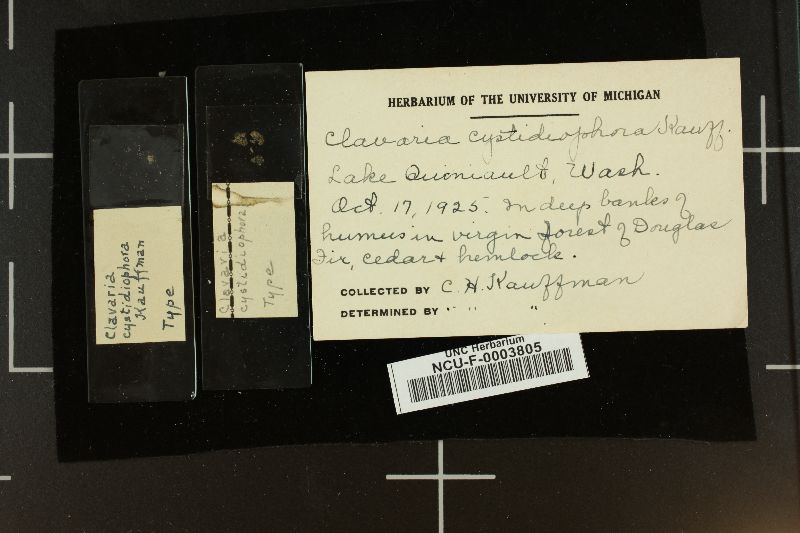 HERBARIUM OF THE UNIVERSITY OF MICHIGAN
Clavaria cystidiophora Kauff.
Lake Quiniault, Wash.
Oct. 17, 1925. In deep banks of
humus in virgin forest of Douglas
Fir, cedar + hemlock.
COLLECTED BY C. H. Kauffman
DETERMINED BY " " "
UNC Herbarium
NCU-F-0003805
Clavaria
cystidiophora
Kauffman
Type
Clavaria
cystidiophora
Type